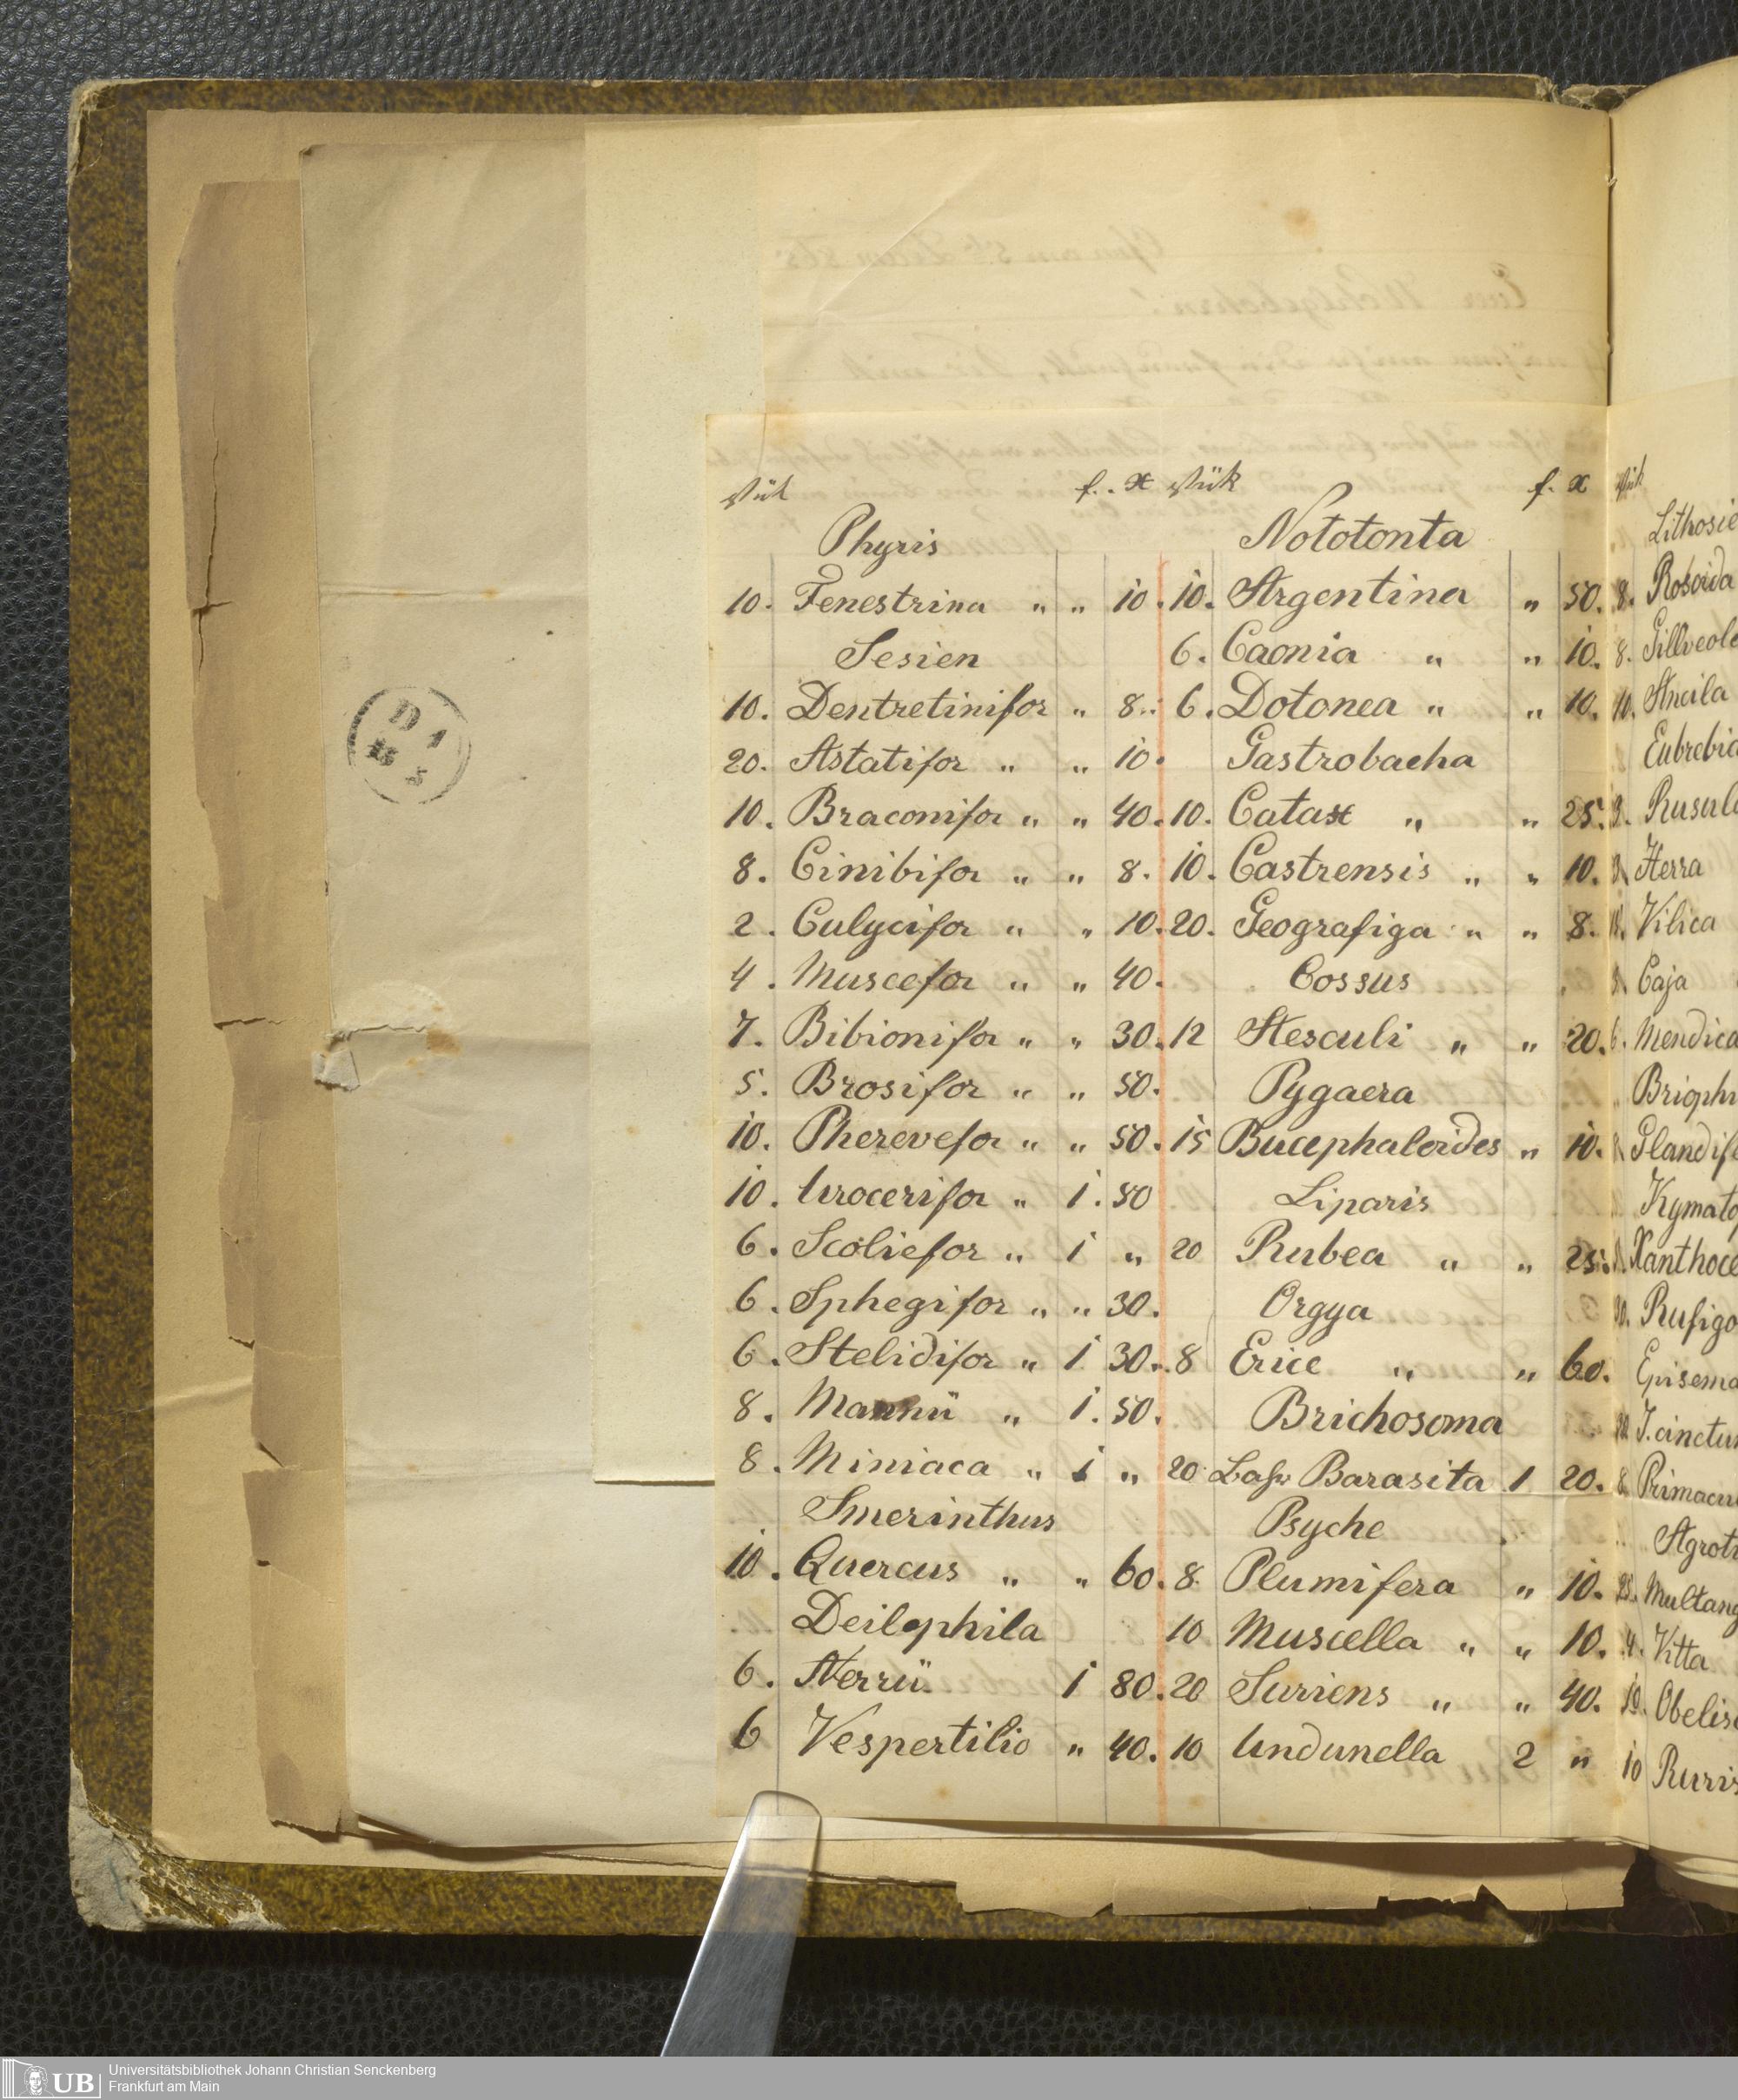 Stük f. x
Phyris
10. Fenestrina " " 10.
Sesien
10. Dentretinifor " 8.
20. Astatifor " " 10.
10. Braconifor " " 40.
8. Cinibifor " " 8.
2. Culycifor " " 10.
4. Muscefor " " 40.
7. Bibionifor " " 30.
5. Brosifor " " 50.
10. Pherevefor " " 50.
10. Urocerifor " 1. 80
6. Scoliefor " 1 "
6. Sphegifor " " 30.
6. Stelidifor " 1 30.
8. Mannii " 1. 50.
8. Miniaca " 1 "
Smerinthus
10. Quercus " " 60.
Deilephila
6. Nerrii 1 80.
6 Vespertilio " 40.
Stük f. x
Nototonta
10. Argentina " 50.
6. Caonia " " 10.
6. Dotonea " " 10.
Gastrobacha
10. Catax " " 25.
10. Castrensis " " 10.
20. Geografiga " " 8.
Cossus
12 Aesculi " " 20.
Pygaera
15 Bucephaloides " 10.
Liparis
20 Rubea " " 25.
Orgya
8 Erice " " 60.
Brichosoma
20 Barasita 1 20.
Psyche
8. Plumifera " 10.
10 Muscella " " 10.
20 Suriens " " 40.
10 Undunella 2 "
Stük
Lithosie
8. Rosoida
8. Gillveole
10. Ancila
Eubrebia
Rusul
Herra
Vilica
Caja
6. Mendica
Briophi
Glandife
Kymato
Xanthoce
Rufigo
Episema
J. cinctu
8. Primacu
Agroti
Multang
4. Vitta
10. Obelisc
10 Ruris
D 1
UB Universitätsbibliothek Johann Christian Senckenberg
Frankfurt am Main